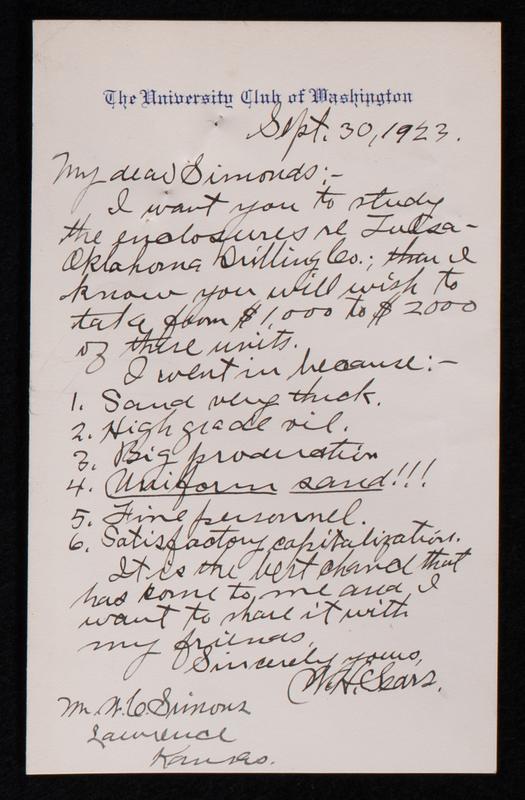 The University Club of Washington
Sept. 30, 1923.
My dear Simonds:-
I want you to study
the enclosures re Tulsa-
Oklahoma Drilling Co.; then I
know you will wish to
take from $1,000 to $2000
of these units.
I went in because:-
1. Sand very thick.
2. High grade oil.
3. Big production
4. Uniform sand!!!
5. Fine personnel.
6. Satisfactory capitalization.
It is the best chance that
has come to me and I
want to share it with
my friends.
Sincerely yours,
W.H. Sears.
Mr. W.C. Simons
Lawrence
Kansas.